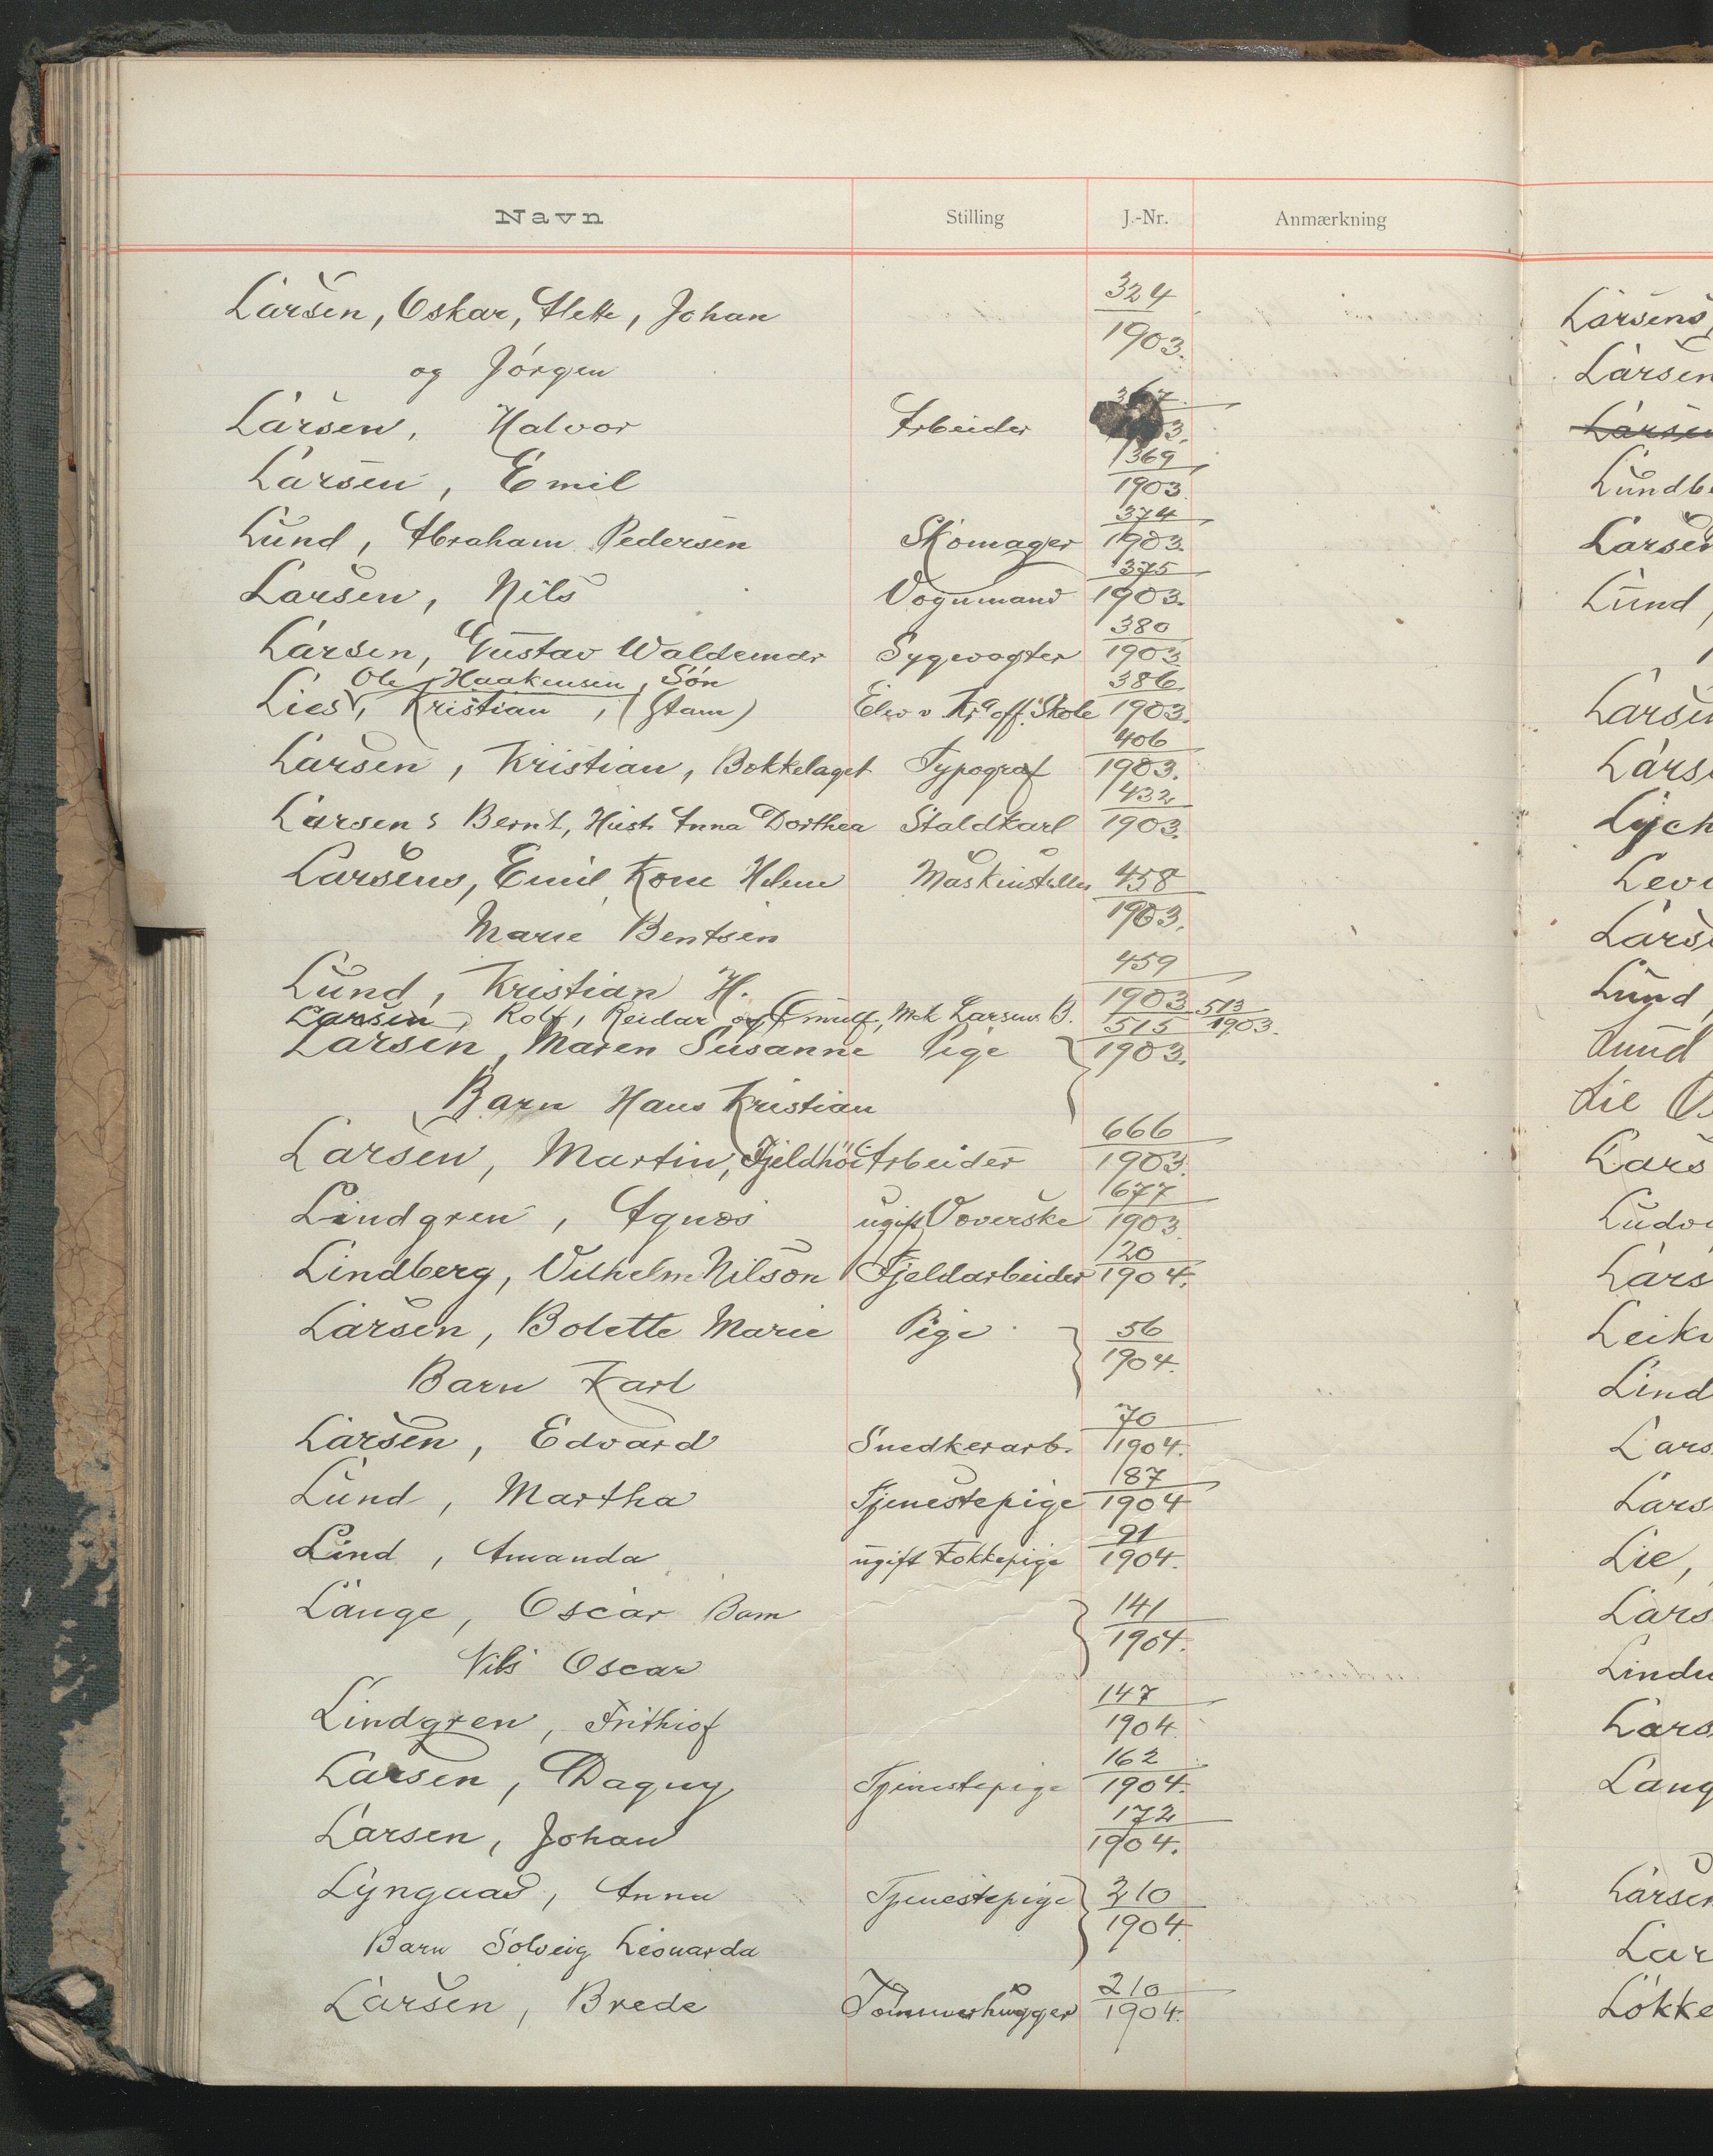 Navn Stilling J.-Nr. Anmærkning
Larsen, Oskar, Alette, Johan 324/1903.
og Jørgen
Larsen, Halvor Arbeider
Larsen, Emil 369/1903.
Lund, Abraham Pedersen Skomager 374/1903.
Larsen, Nils Vognmand 375/1903.
Larsen, Gustav Waldemar Sygevogter 380/1903
Ole Haakensen, Søn
Lies, Kristian, (Stam) Elev v. Kra off. Skole 386/1903.
Larsen, Kristian, Bokkelaget Typograf 406/1903.
Larsens Bernt, Hust. Anna Dorthea Staldkarl 432/1903.
Larsens, Emil, Kone Helene Maskinsteller 458/1903.
Marie Bentsen
Lund, Kristian H. 459/1903
Larsen, Rolf, Reidar og 513/1903.
Larsen, Maren Susanne Pige } 515/1903.
Barn Hans Kristian
Larsen, Martin, Fjeldhöi Arbeider 666/1903.
Lindgren, Agnes ugift Væverske 677/1903.
Lindberg, Vilhelm Nilson Fjeldarbeider 20/1904.
Larsen, Bolette Marie Pige } 56/1904.
Barn Karl
Larsen, Edvard Snedkerarb. 70/1904.
Lund, Martha Tjenestepige 87/1904
Lind, Amanda ugift Kokkepige 91/1904.
Lange, Oscar Barn } 141/1904.
Nils Oscar
Lindgren, Frithiof 147/1904
Larsen, Dagny Tjenestepige 162/1904.
Larsen, Johan 172/1904.
Lyngaas, Anna Tjenestepige } 210/1904.
Barn Solveig Leonarda
Larsen, Brede Tömmerhugger 210/1904.
Larsens,
Larsen
Larsen
Lundb
Larsen
Lund,
Larsen
Lars
Lych
Lev
Lars
Lund
Lund
Lie
Lars
Ludv
Lars
Leik
Lind
Lars
Lars
Lie,
Lars
Lind
Lars
Lang
Larsen
Lar
Lökke